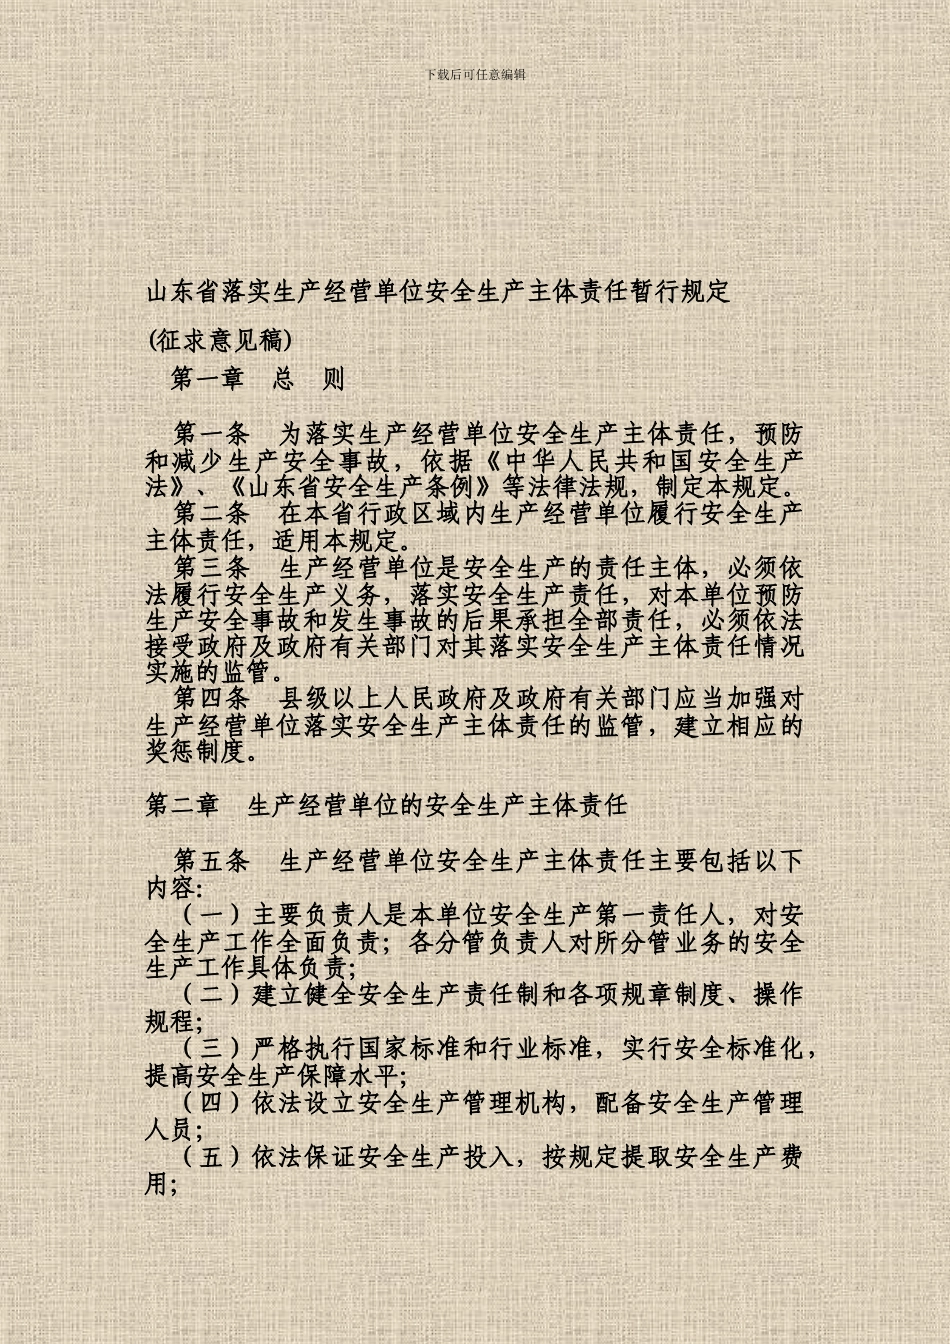 下载后可任意编辑
山东省落实生产经营单位安全生产主体责任暂行规定
(征求意见稿)
第一章　总　则
第一条　为落实生产经营单位安全生产主体责任，预防
和减少生产安全事故，依据《中华人民共和国安全生产
法》、《山东省安全生产条例》等法律法规，制定本规定。
第二条　在本省行政区域内生产经营单位履行安全生产
主体责任，适用本规定。
第三条　生产经营单位是安全生产的责任主体，必须依
法履行安全生产义务，落实安全生产责任，对本单位预防
生产安全事故和发生事故的后果承担全部责任，必须依法
接受政府及政府有关部门对其落实安全生产主体责任情况
实施的监管。
第四条　县级以上人民政府及政府有关部门应当加强对
生产经营单位落实安全生产主体责任的监管，建立相应的
奖惩制度。
第二章　生产经营单位的安全生产主体责任
第五条　生产经营单位安全生产主体责任主要包括以下
内容：
（一）主要负责人是本单位安全生产第一责任人，对安
全生产工作全面负责；各分管负责人对所分管业务的安全
生产工作具体负责；
（二）建立健全安全生产责任制和各项规章制度、操作
规程；
（三）严格执行国家标准和行业标准，实行安全标准化，
提高安全生产保障水平；
（四）依法设立安全生产管理机构，配备安全生产管理
人员；
（五）依法保证安全生产投入，按规定提取安全生产费
用；